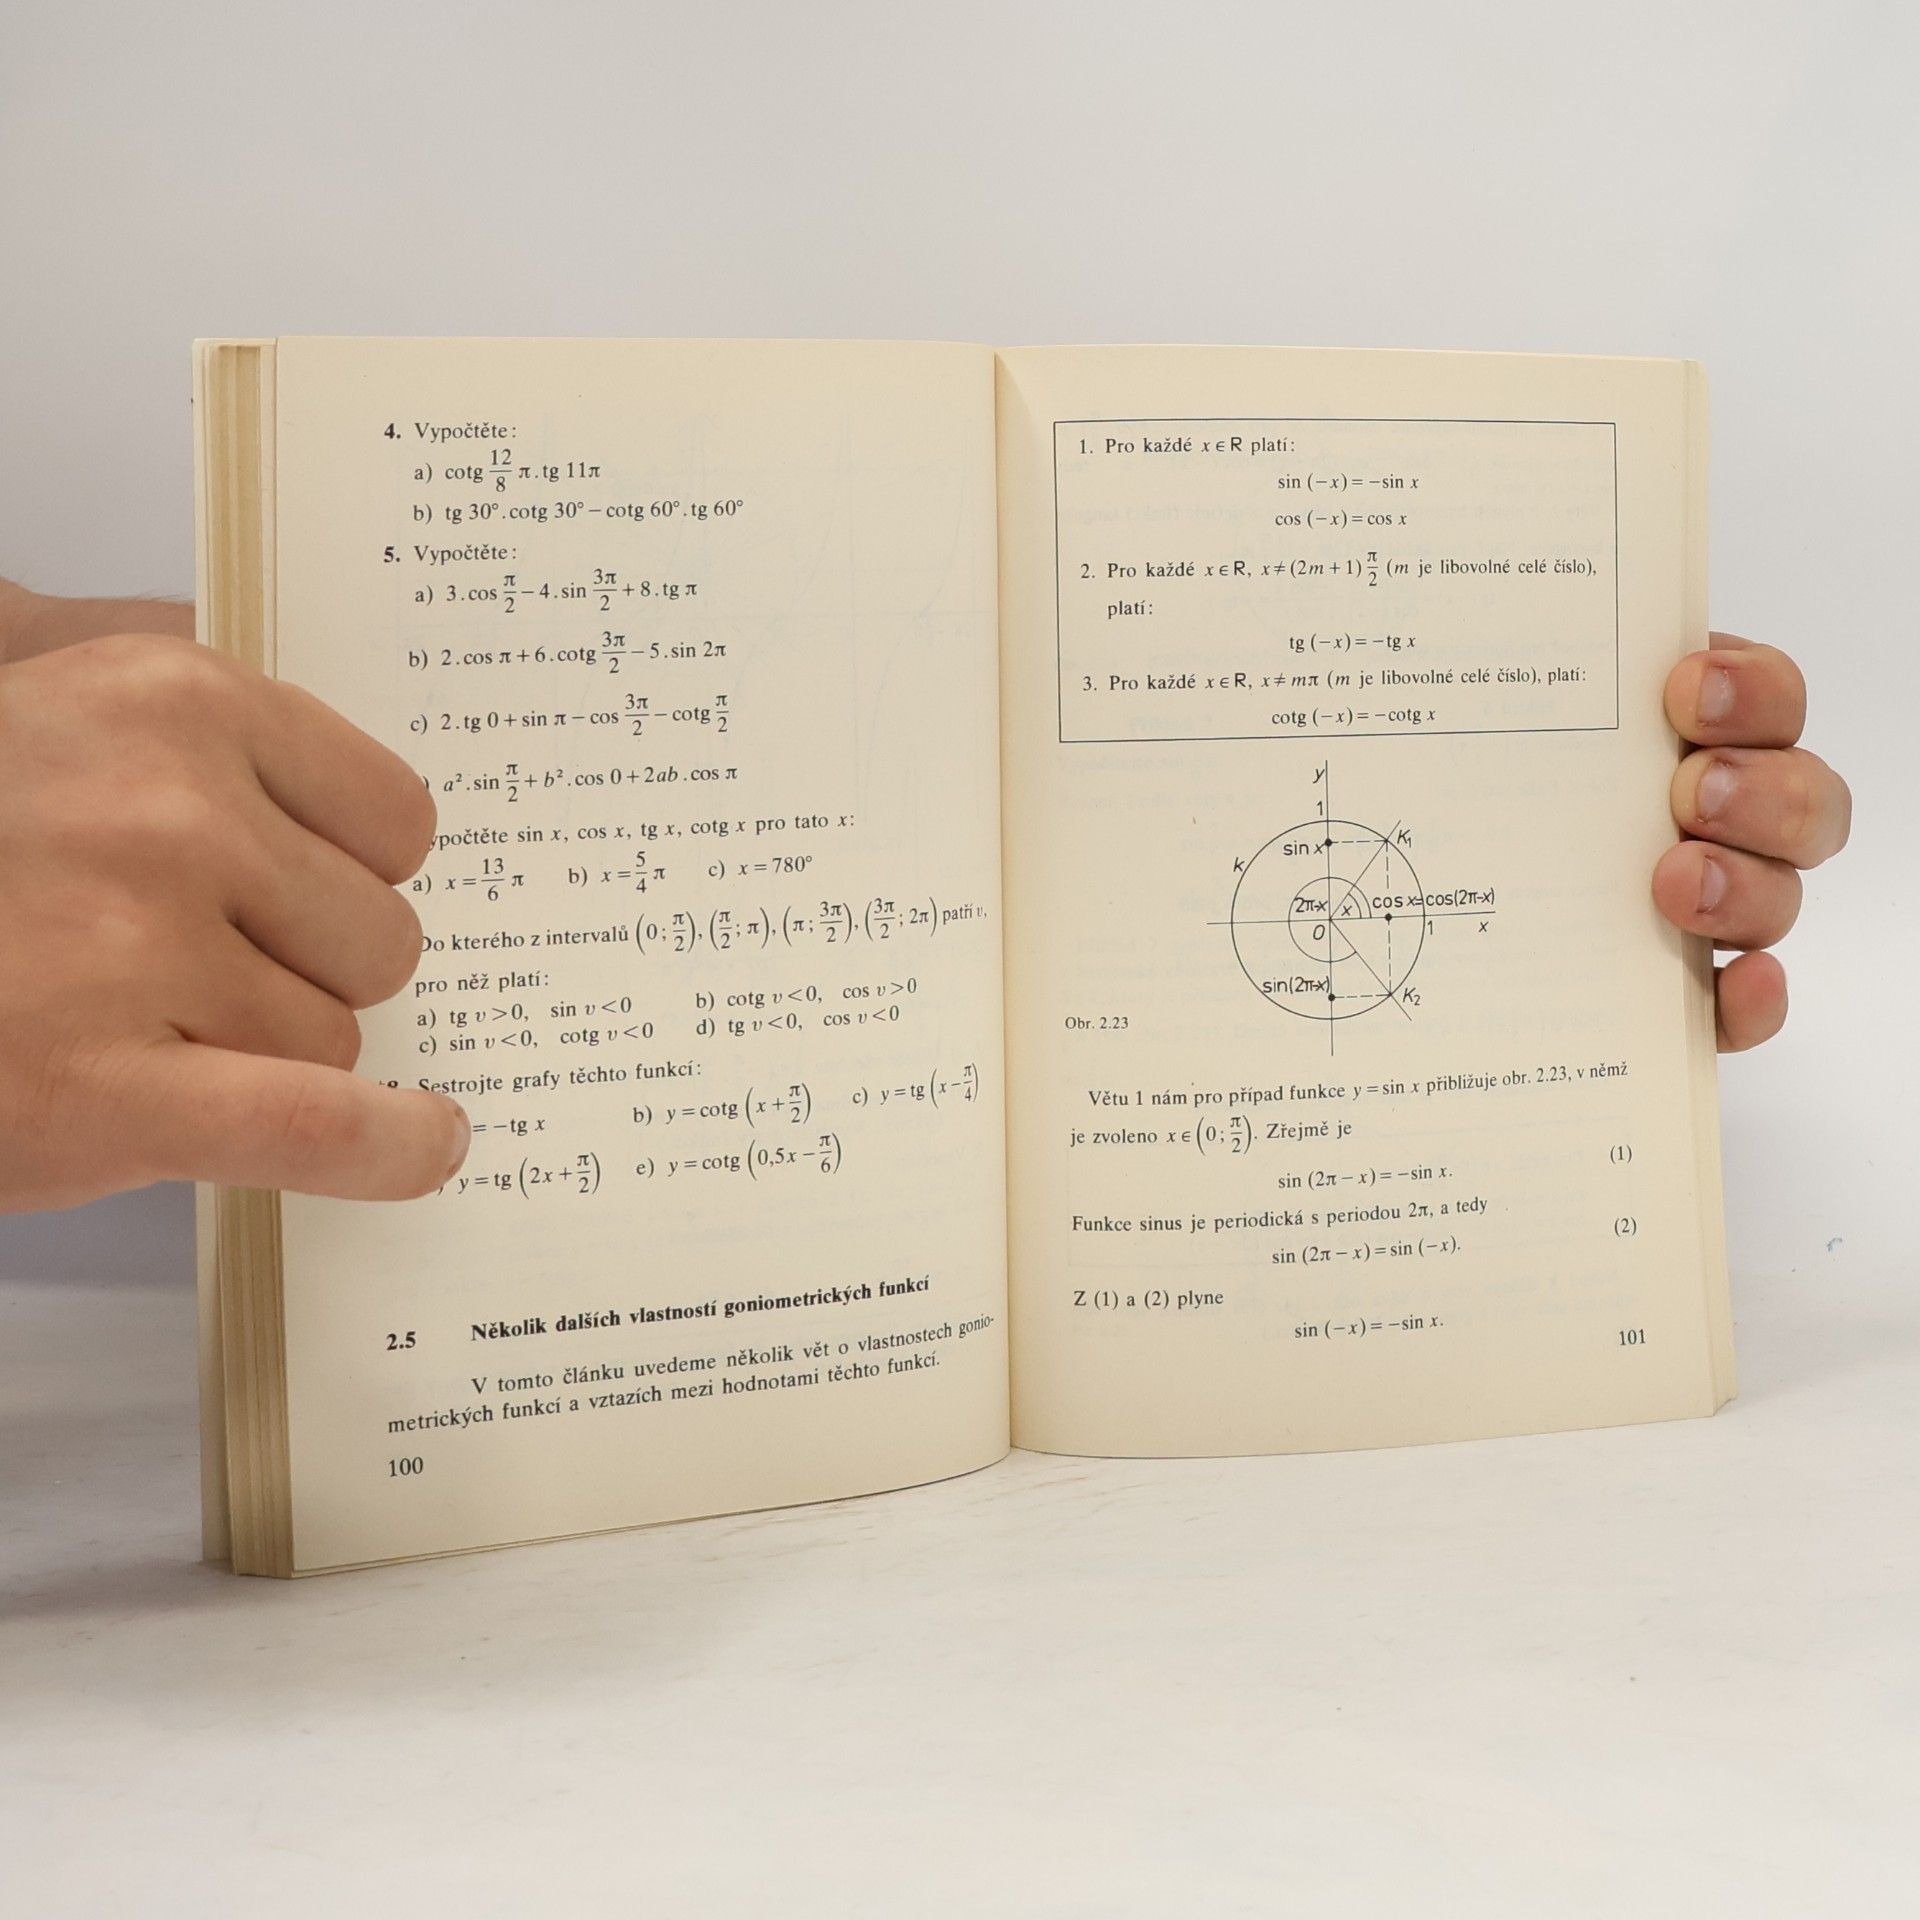 4. Vypočtěte:
a) cotg 12/8 π . tg 11π
b) tg 30° . cotg 30° − cotg 60° . tg 60°
5. Vypočtěte:
a) 3 . cos π/2 − 4 . sin 3π/2 + 8 . tg π
b) 2 . cos π + 6 . cotg 3π/2 − 5 . sin 2π
c) 2 . tg 0 + sin π − cos 3π/2 − cotg π/2
) a² . sin π/2 + b² . cos 0 + 2ab . cos π
ypočtěte sin x, cos x, tg x, cotg x pro tato x:
a) x = 13/6 π b) x = 5/4 π c) x = 780°
Do kterého z intervalů (0; π/2), (π/2; π), (π; 3π/2), (3π/2; 2π) patří v,
pro něž platí:
a) tg v > 0, sin v < 0 b) cotg v < 0, cos v > 0
c) sin v < 0, cotg v < 0 d) tg v < 0, cos v < 0
Sestrojte grafy těchto funkcí:
= −tg x b) y = cotg (x + π/2) c) y = tg (x − π/4)
) y = tg (2x + π/2) e) y = cotg (0,5x − π/6)
2.5 Několik dalších vlastností goniometrických funkcí
V tomto článku uvedeme několik vět o vlastnostech gonio-
metrických funkcí a vztazích mezi hodnotami těchto funkcí.
100
1. Pro každé x ∈ R platí:
sin (−x) = −sin x
cos (−x) = cos x
2. Pro každé x ∈ R, x ≠ (2m + 1) π/2 (m je libovolné celé číslo),
platí:
tg (−x) = −tg x
3. Pro každé x ∈ R, x ≠ mπ (m je libovolné celé číslo), platí:
cotg (−x) = −cotg x
y
1
sin x K₁
k
2π-x x cos x=cos(2π-x)
0 1 x
sin(2π-x) K₂
Obr. 2.23
Větu 1 nám pro případ funkce y = sin x přibližuje obr. 2.23, v němž
je zvoleno x ∈ (0; π/2). Zřejmě je
sin (2π − x) = −sin x. (1)
Funkce sinus je periodická s periodou 2π, a tedy
sin (2π − x) = sin (−x). (2)
Z (1) a (2) plyne
sin (−x) = −sin x.
101